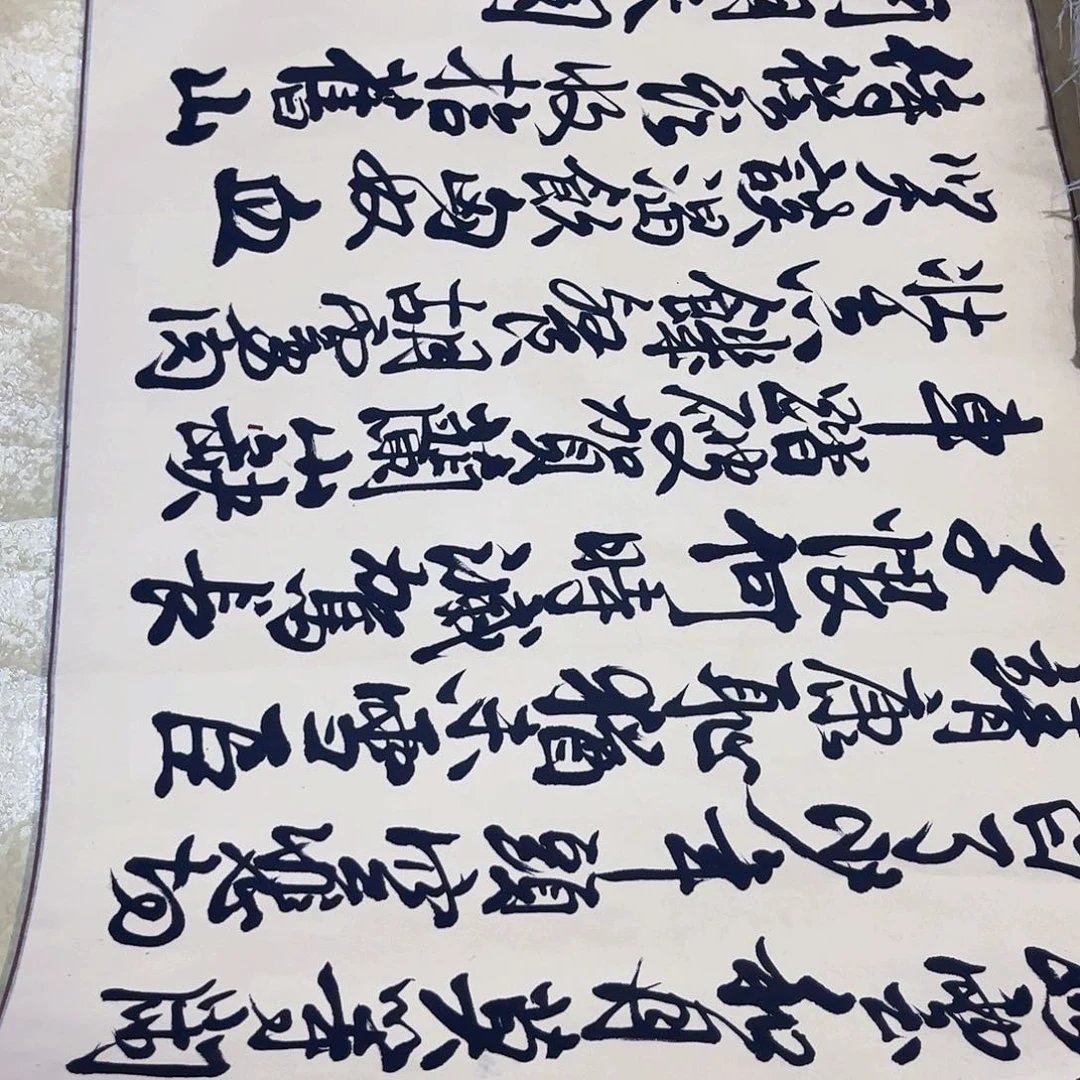 雲和月莫等閑
白了少年頭空悲切
靖康恥猶未雪臣
子恨何時滅駕長
車踏破賀蘭山缺
壯志饑餐胡虜肉
笑談渴飲匈奴血
待從頭收拾舊山